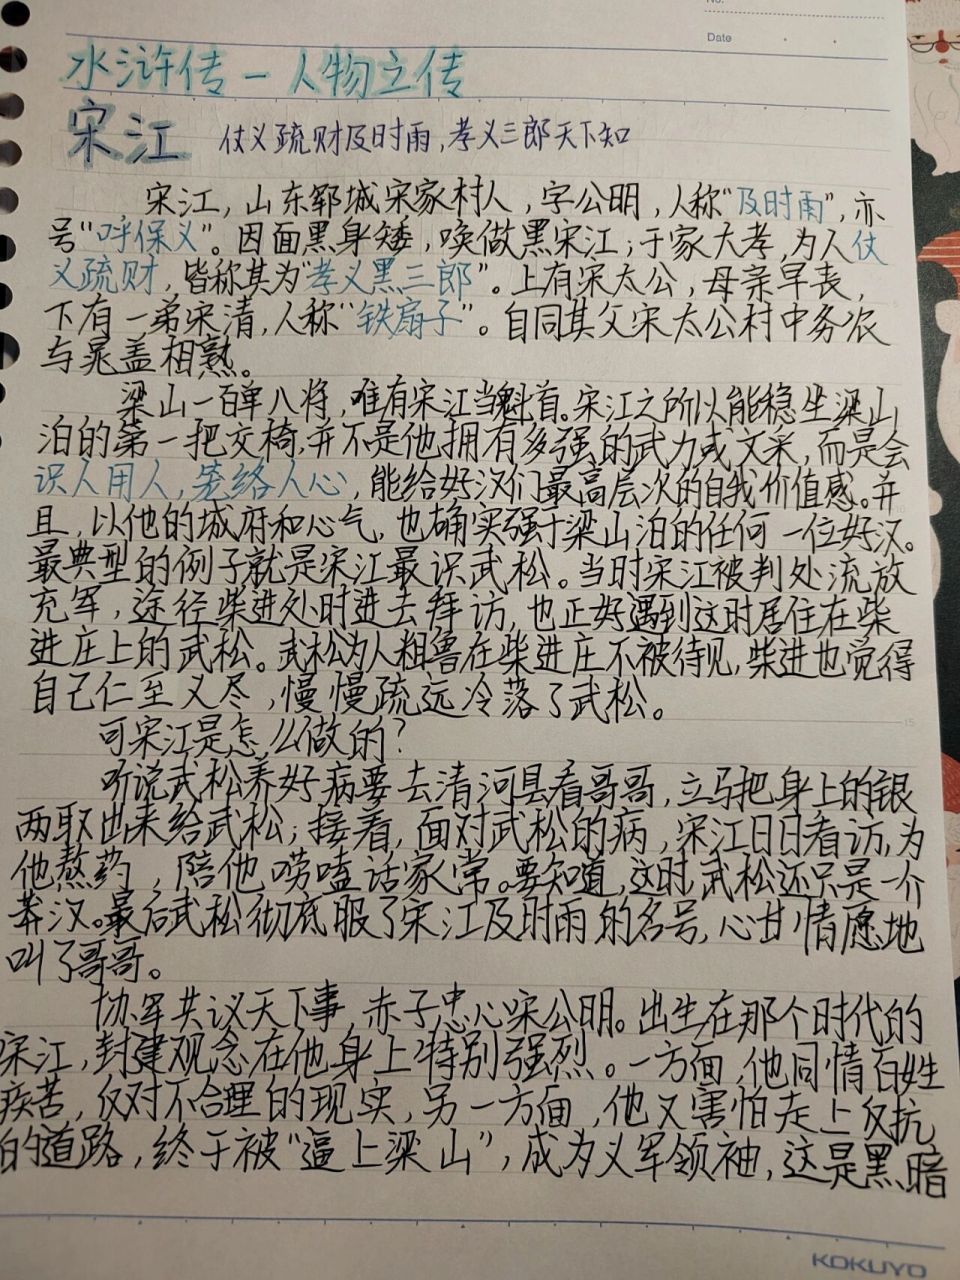 No.
Date
水浒传-人物立传
宋江 仗义疏财及时雨,孝义三郎天下知
宋江,山东郓城宋家村人,字公明,人称"及时雨",亦
号"呼保义"。因面黑身矮,唤做黑宋江;于家大孝,为人仗
义疏财,皆称其为"孝义黑三郎"。上有宋太公,母亲早丧,
下有一弟宋清,人称"铁扇子"。自同其父宋太公村中务农
与晁盖相熟。
梁山一百单八将,唯有宋江当魁首。宋江之所以能稳坐梁山
泊的第一把交椅,并不是他拥有多强的武力或文采,而是会
识人用人,笼络人心,能给好汉们最高层次的自我价值感。并
且,以他的城府和心气,也确实强于梁山泊的任何一位好汉。
最典型的例子就是宋江最识武松。当时宋江被判处流放
充军,途径柴进处时进去拜访,也正好遇到这时居住在柴
进庄上的武松。武松为人粗鲁在柴进庄不被待见,柴进也觉得
自己仁至义尽,慢慢疏远冷落了武松。
可宋江是怎么做的?
听说武松养好病要去清河县看哥哥,立马把身上的银
两取出来给武松;接着,面对武松的病,宋江日日看访,为
他熬药,陪他唠嗑话家常。要知道,这时武松还只是一个
莽汉。最后武松彻底服了宋江及时雨的名号,心甘情愿地
叫了哥哥。
协军共议天下事,赤子忠心宋公明。出生在那个时代的
宋江,封建观念在他身上特别强烈。一方面,他同情百姓
疾苦,仅对不合理的现实,另一方面,他又害怕走上反抗
的道路,终于被"逼上梁山",成为义军领袖,这是黑暗
KOKUYO